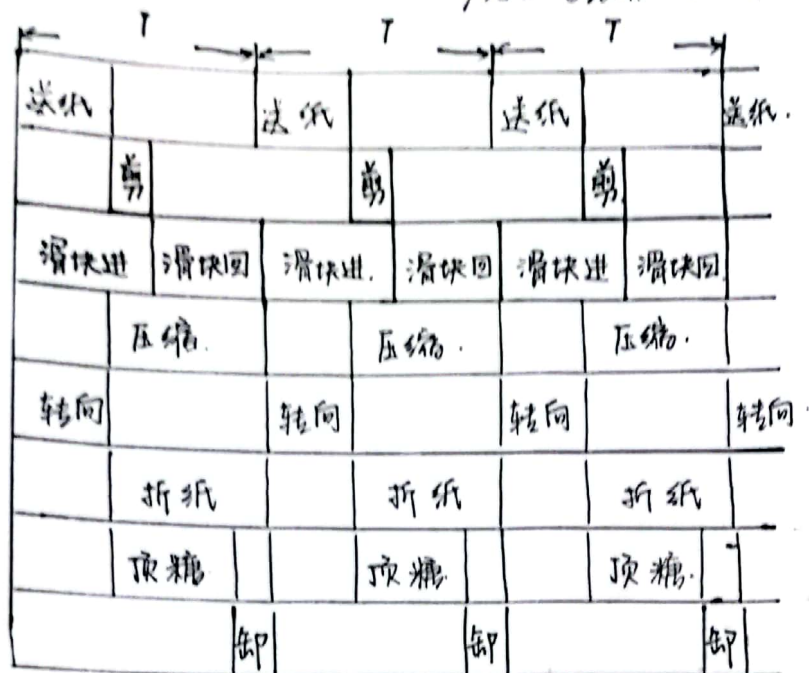 T T T
送纸 送纸 送纸 送纸.
剪 剪 剪
滑块进 滑块回 滑块进. 滑块回 滑块进 滑块回
压缩. 压缩. 压缩.
转向 转向 转向 转向.
折纸 折纸 折纸
顶糖 顶糖. 顶糖.
卸 卸 卸